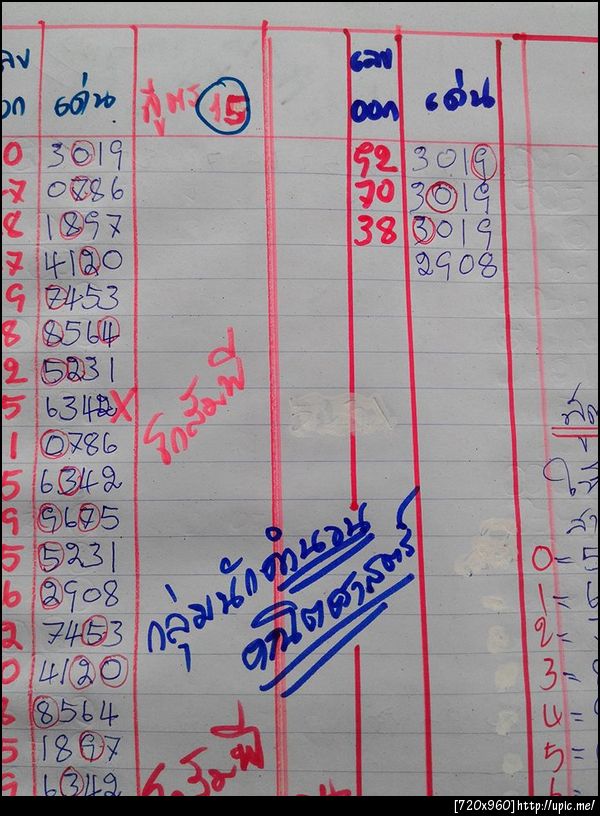 เลข
ออก เด่น สูตร 15
0 3019
7 0786
8 1897
7 4120
9 7453
8 8564
2 5231
5 6342 X
1 0786
5 6342
9 9675
5 5231
6 2908
2 7453
0 4120
8564
5 1897
6342
เลข
ออก เด่น
92 3019
70 3019
38 3019
2908
โกสัมพี
กลุ่มนักคำนวน
คณิตศาสตร์
โกสัมพี
0 = 5
1 = 6
2 =
3 =
4 =
5 =
[720x960]http://upic.me/